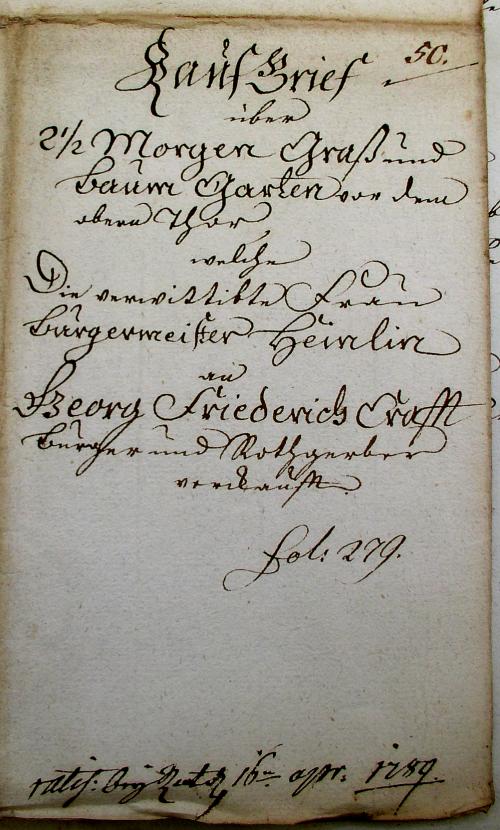 Kauf Brief 50.
über
2 1/2 Morgen Graß und
Baum Garten vor dem
obern Thor,
welche
Die verwittibte Frau
Burgermeister Heimlin
an
Georg Friederich Crafft
burger und Rothgerber
verckaufft.
Fol: 279.
ratif: bey Rath 16ten apr: 1789.